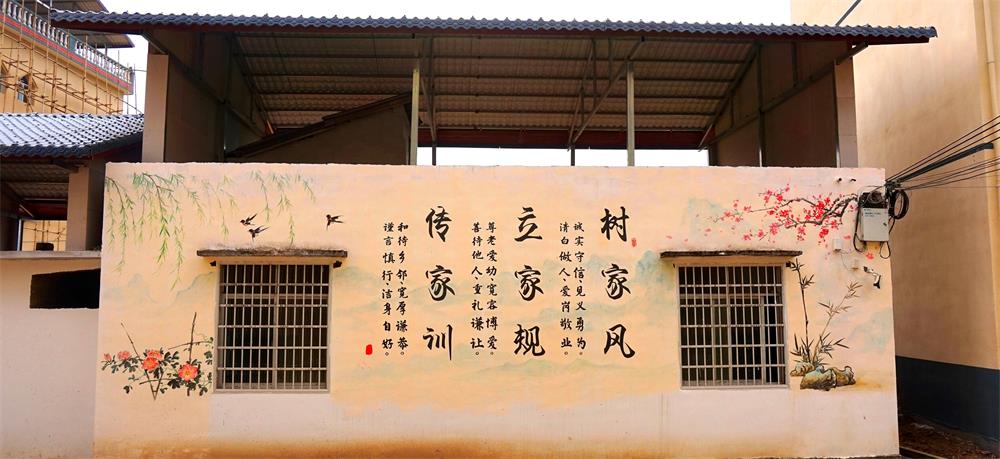 树家风
诚实守信、见义勇为。
清白做人、爱岗敬业。
立家规
尊老爱幼、宽容博爱。
善待他人、重礼谦让。
传家训
和待乡邻、宽厚谦恭。
谨言慎行、洁身自好。